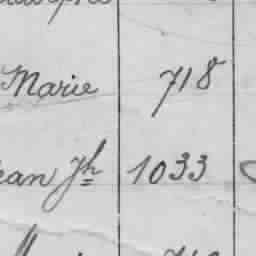 Marie 718
ean Jh 1033